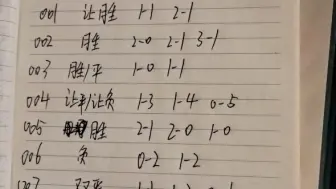 001 让胜 1-1 2-1
002 胜 2-0 2-1 3-1
003 胜/平 1-0 1-1
004 让平/让负 1-3 1-4 0-5
005 胜 2-1 2-0 1-0
006 负 0-2 1-2
007 双平 1-1